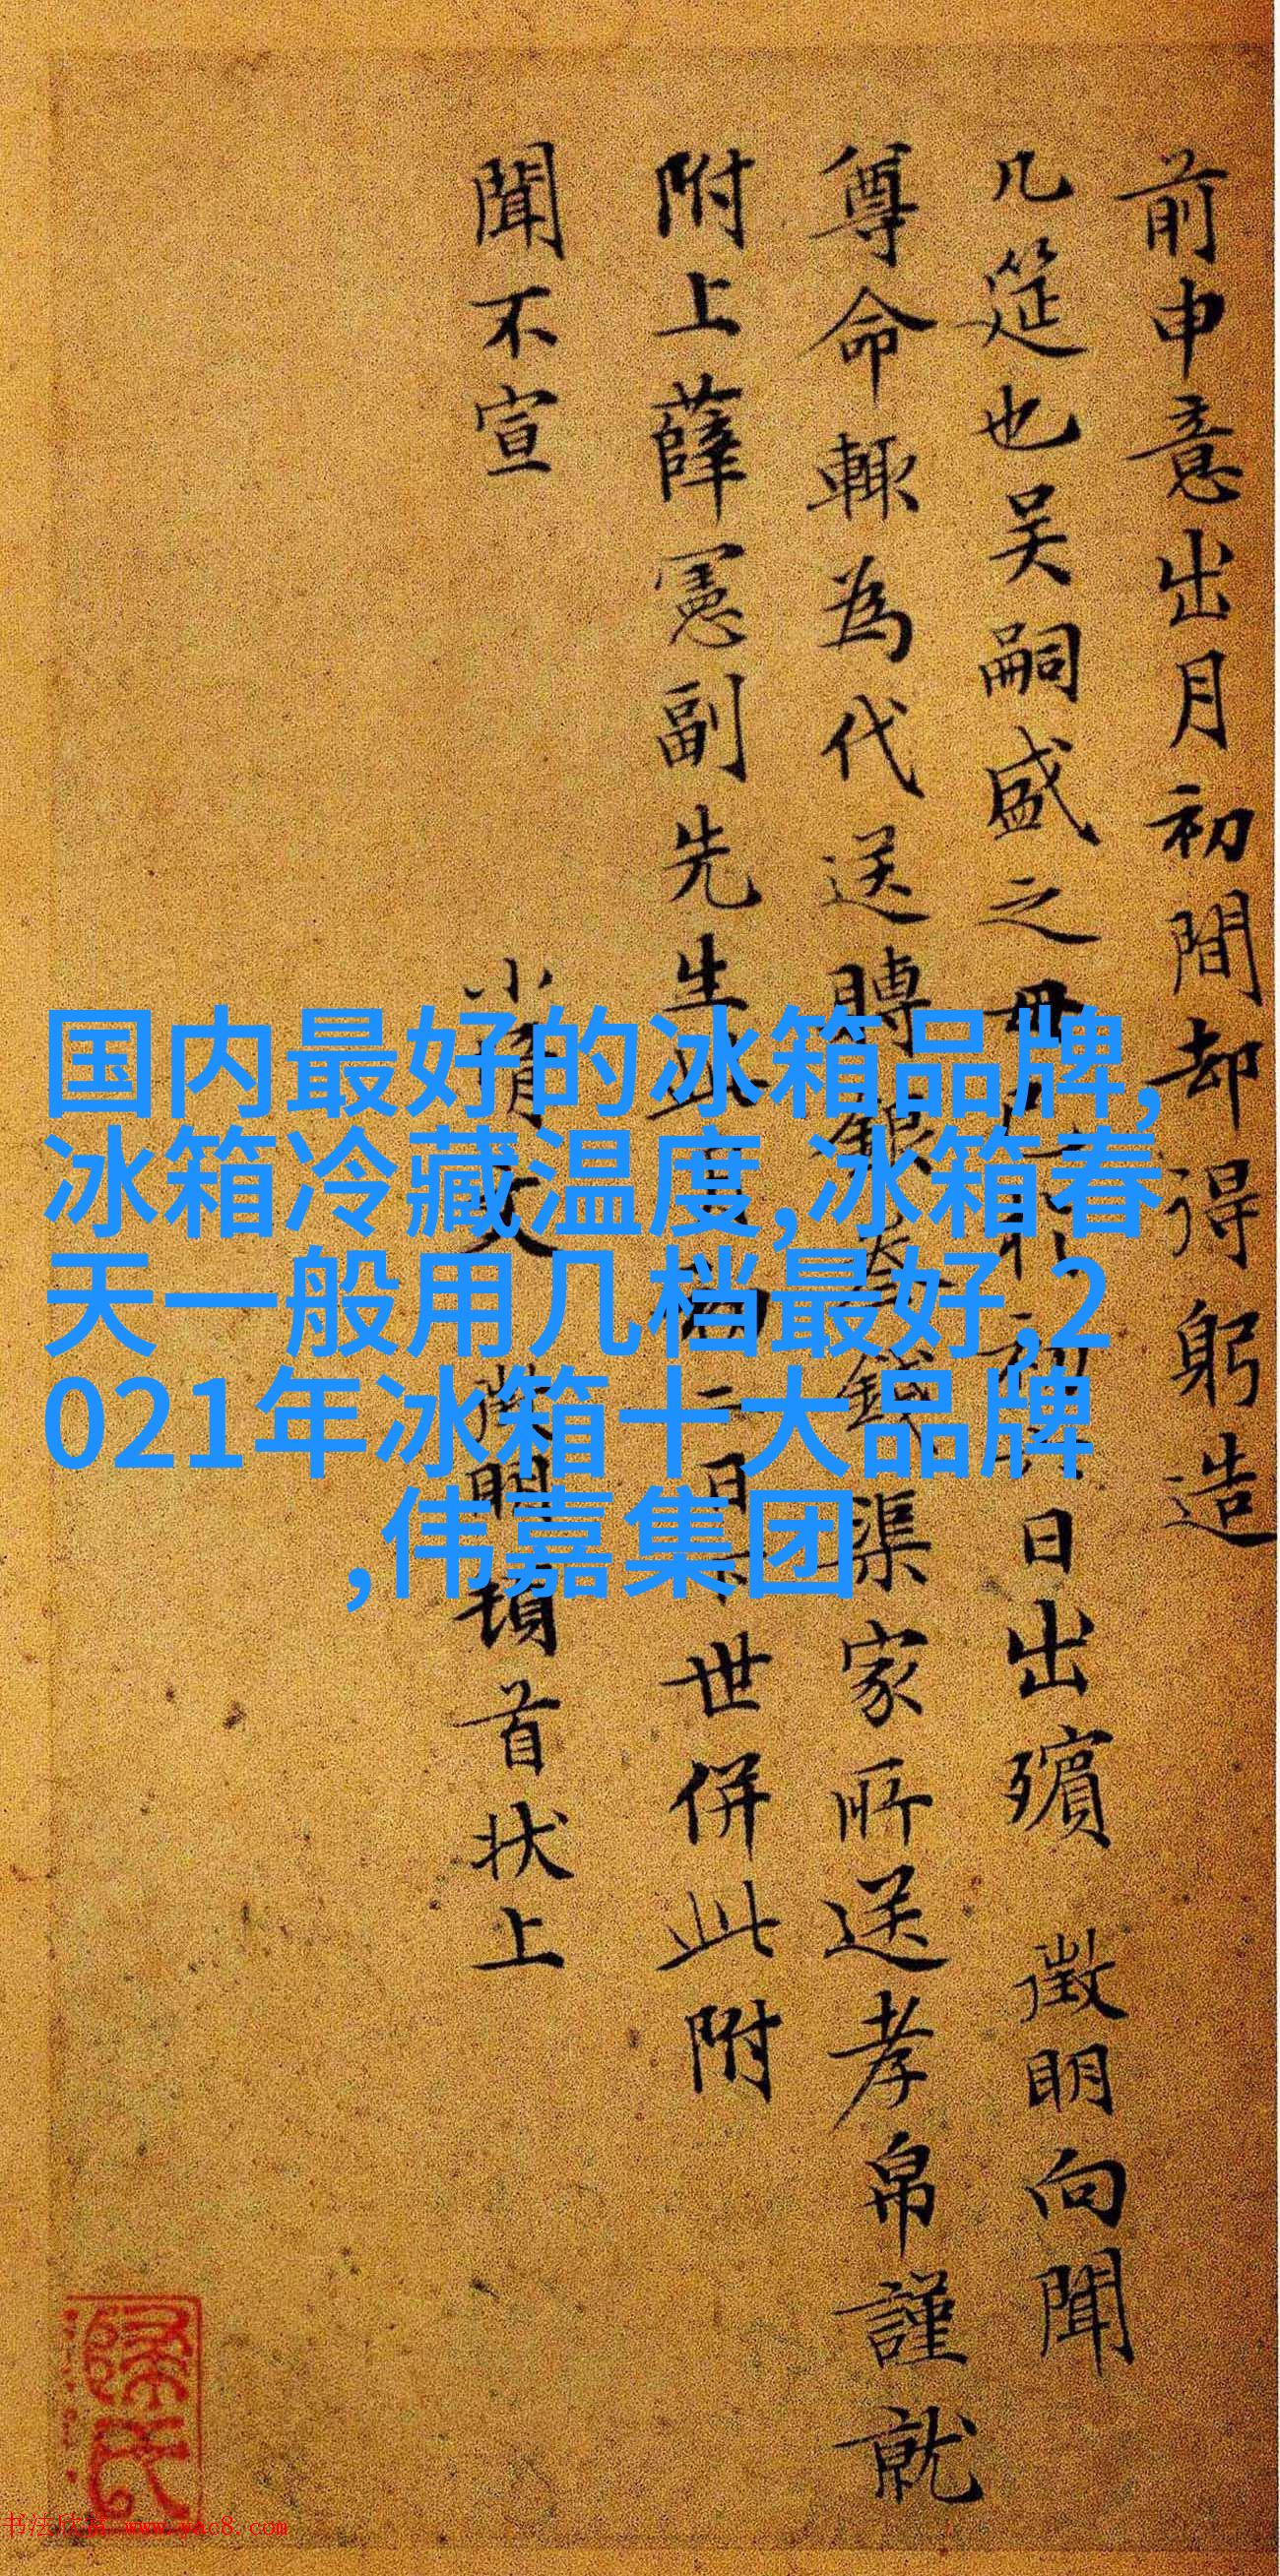 前申意出月初間却得躬造
几筵也吴嗣盛之母日出殯 徵明向聞
尊命輒為代送賻銀錢渠家所送孝帛謹就
附上薛憲副先生世併此附
聞不宣
頓首状上
国内最好的冰箱品牌,
冰箱冷藏温度,冰箱春
天一般用几档最好,2
021年冰箱十大品牌
,伟嘉集团
书法欣赏 www.yac8.com